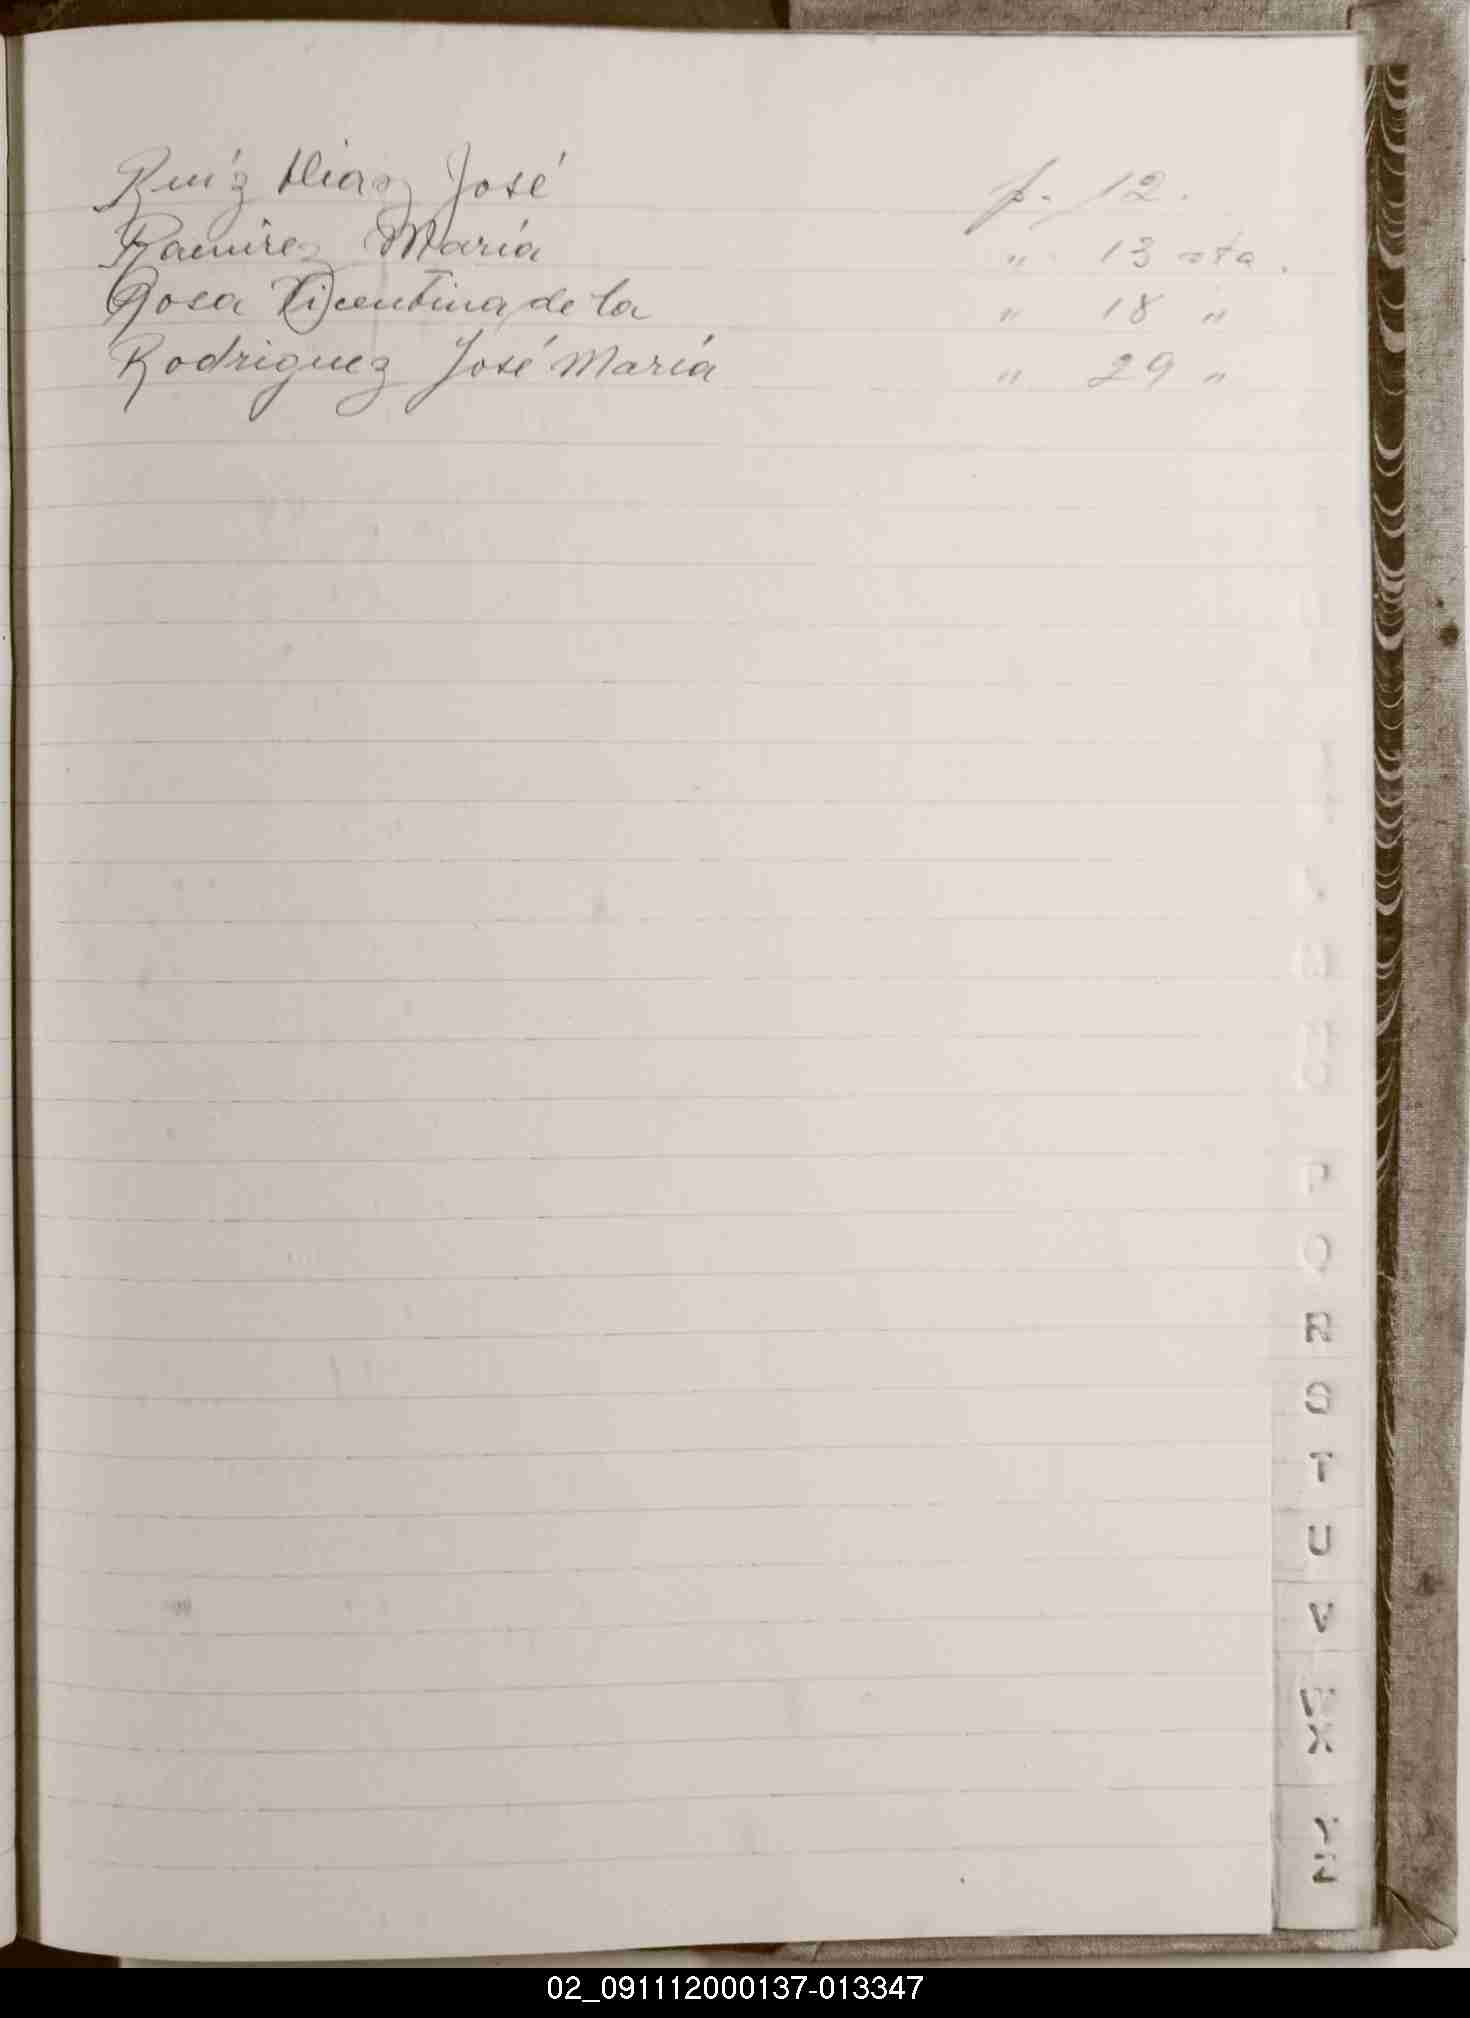 Ruíz Diaz José f. 12.
Ramírez María " 13 vta.
Rosa Vicentina de la " 18 "
Rodriguez José María " 29 "
M
N
O
P
Q
R
S
T
U
V
W
X
Y
Z
02_091112000137-013347